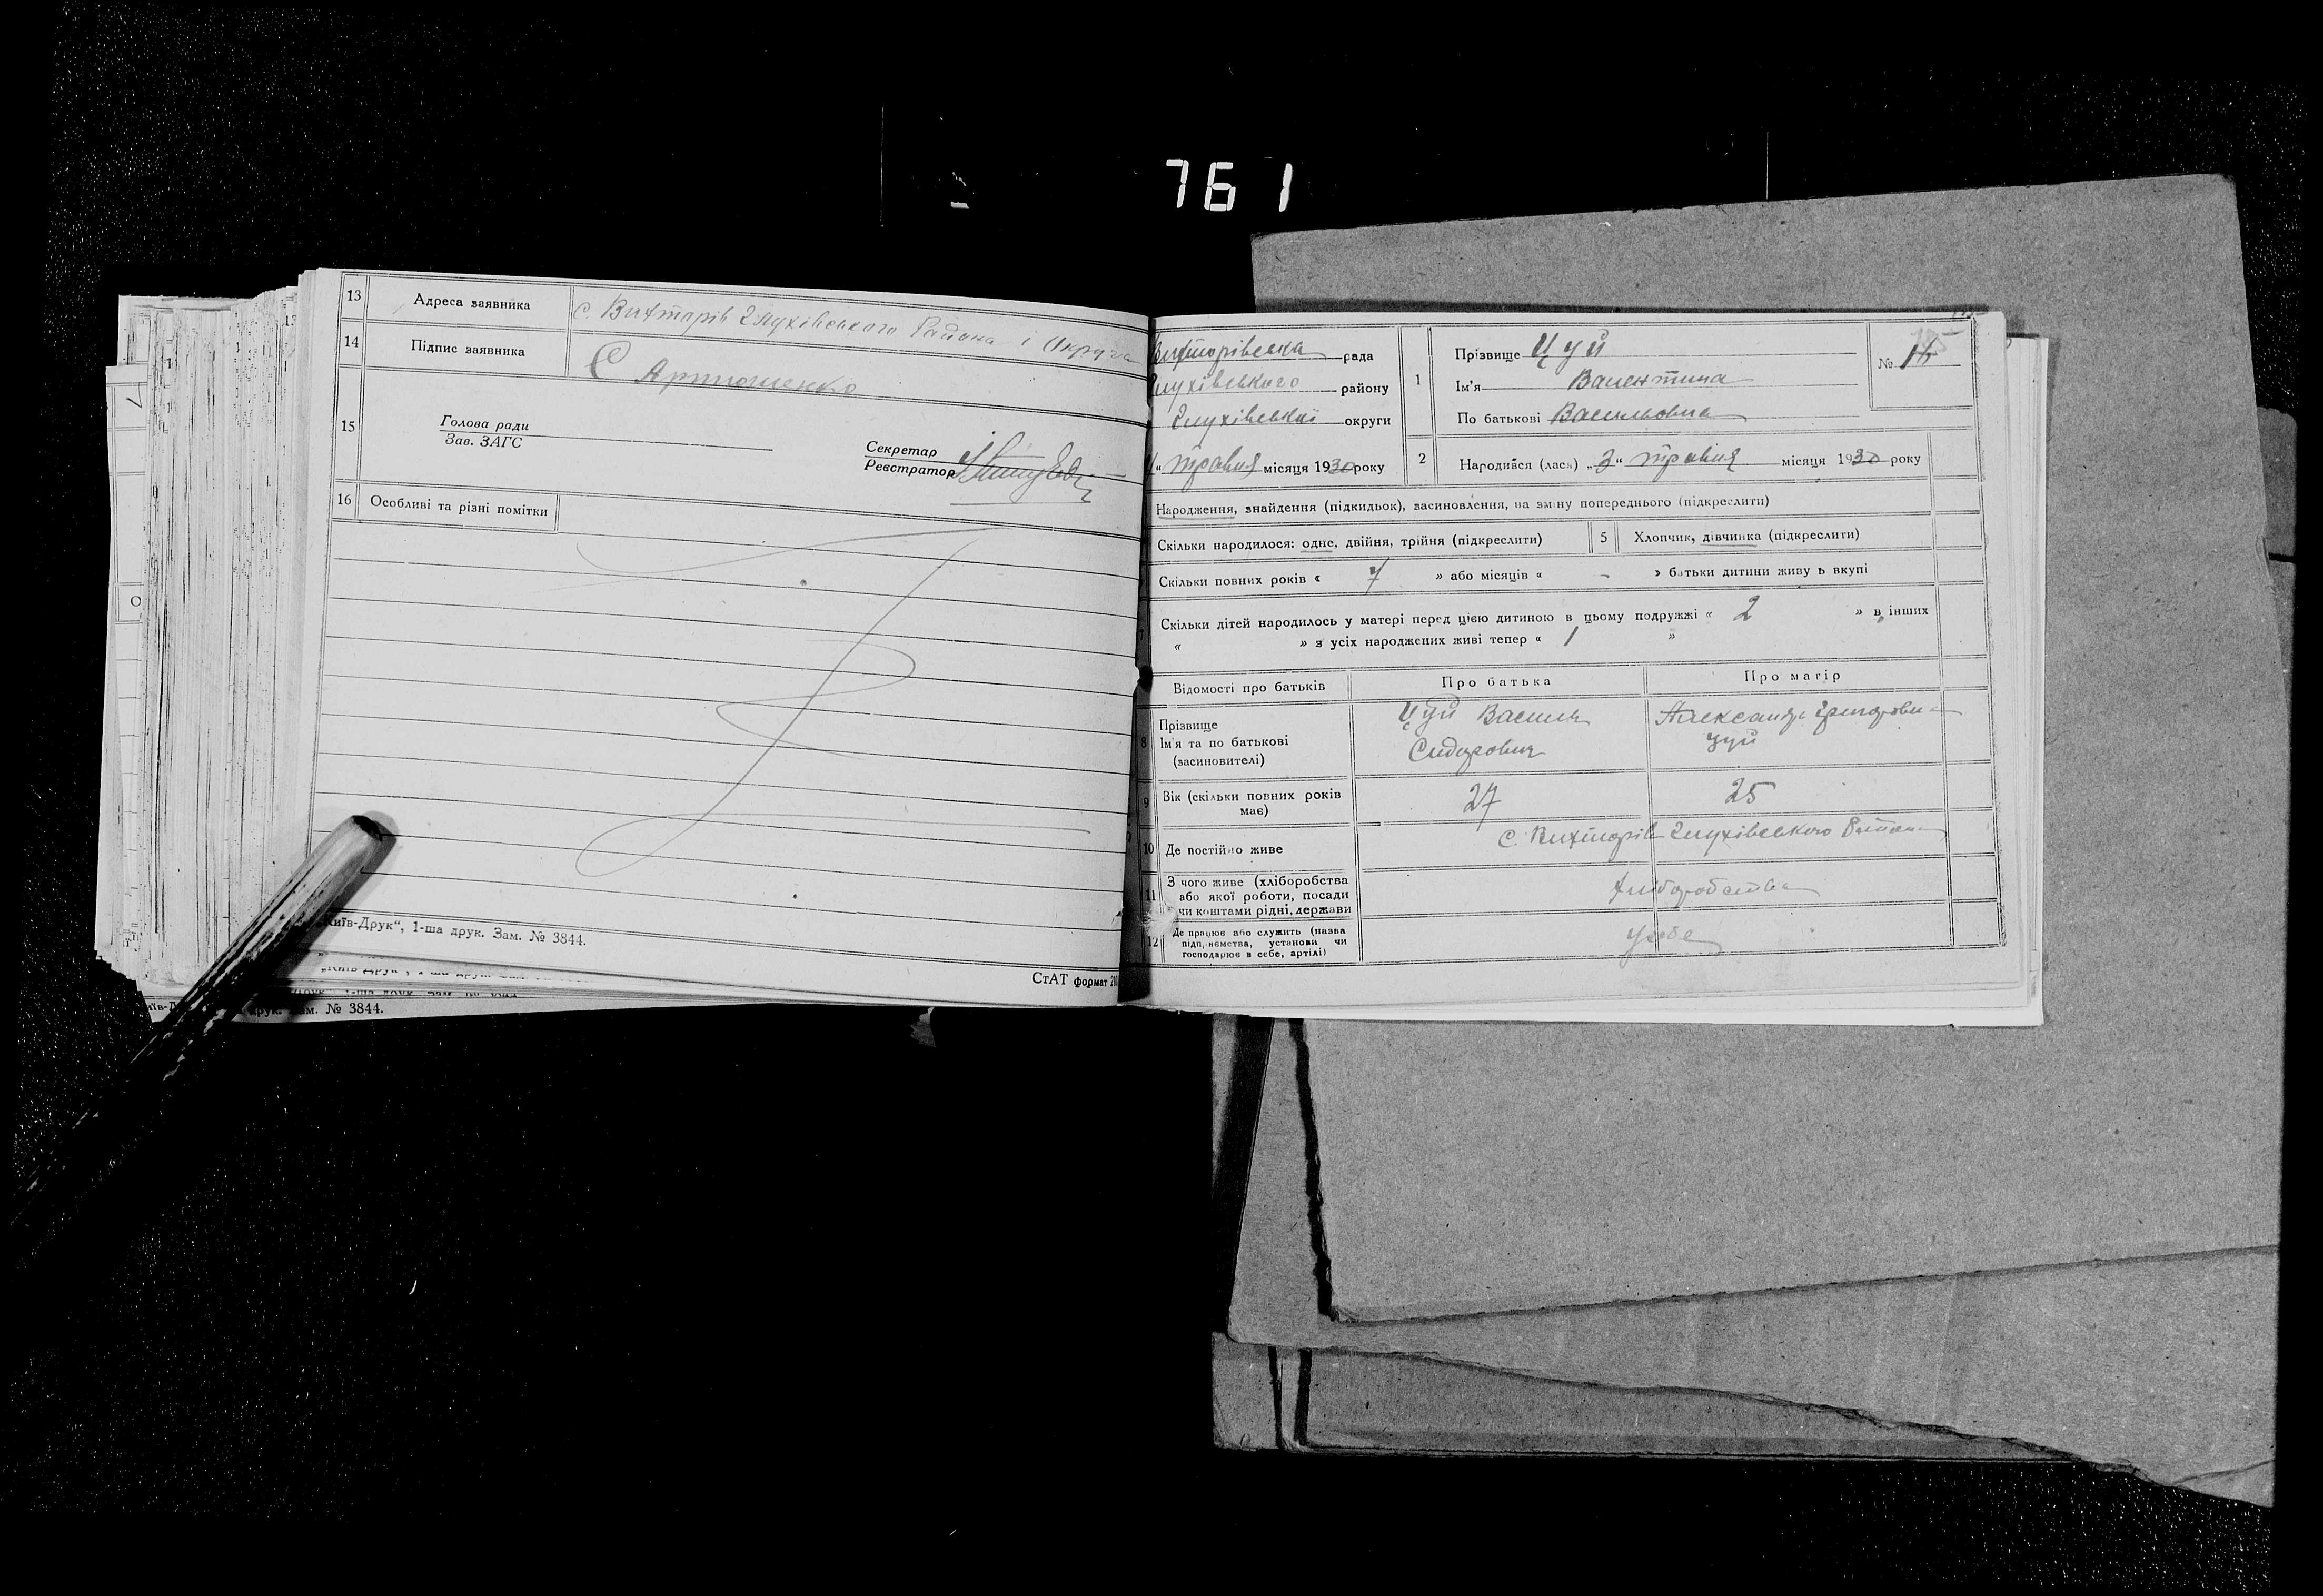 761
13 Адреса заявника с. Вихторів Глухівського Района і Округа
14 Підпис заявника Артюшенко
15 Голова ради
Зав. ЗАГС
Секретар
Реєстратор
16 Особливі та різні помітки
„Київ-Друк“, 1-ша друк. Зам. № 3844.
СтАТ формат
№ 3844.
Вихторівська рада
Глухівського району
Глухівської округи
“ травня місяця 1930 року
1 Прізвище Цуй
Ім'я Валентина
По батькові Васильовна
№
2 Народився (лась) „3“ травня місяця 1930 року
Народження, знайдення (підкидьок), засиновлення, на зміну попереднього (підкреслити)
Скільки народилося: одне, двійня, трійня (підкреслити)
5 Хлопчик, дівчинка (підкреслити)
Скільки повних років « 7 » або місяців « – » батьки дитини живу ь вкупі
7 Скільки дітей народилось у матері перед цією дитиною в цьому подружжі « 2 » в інших
« » з усіх народжених живі тепер « 1 »
Відомості про батьків Про батька Про матір
8 Прізвище
Ім'я та по батькові
(засиновителі)
Цуй Василь
Сидорович
Александра Григоровна
Цуй
9 Вік (скільки повних років
має)
27 25
10 Де постійно живе с. Вихторів Глухівського Района
11 З чого живе (хліборобства
або якої роботи, посади
чи коштами рідні, держави
хліборобства
12 Де працює або служить (назва
підприємства, установи чи
господарює в себе, артілі)
у себе